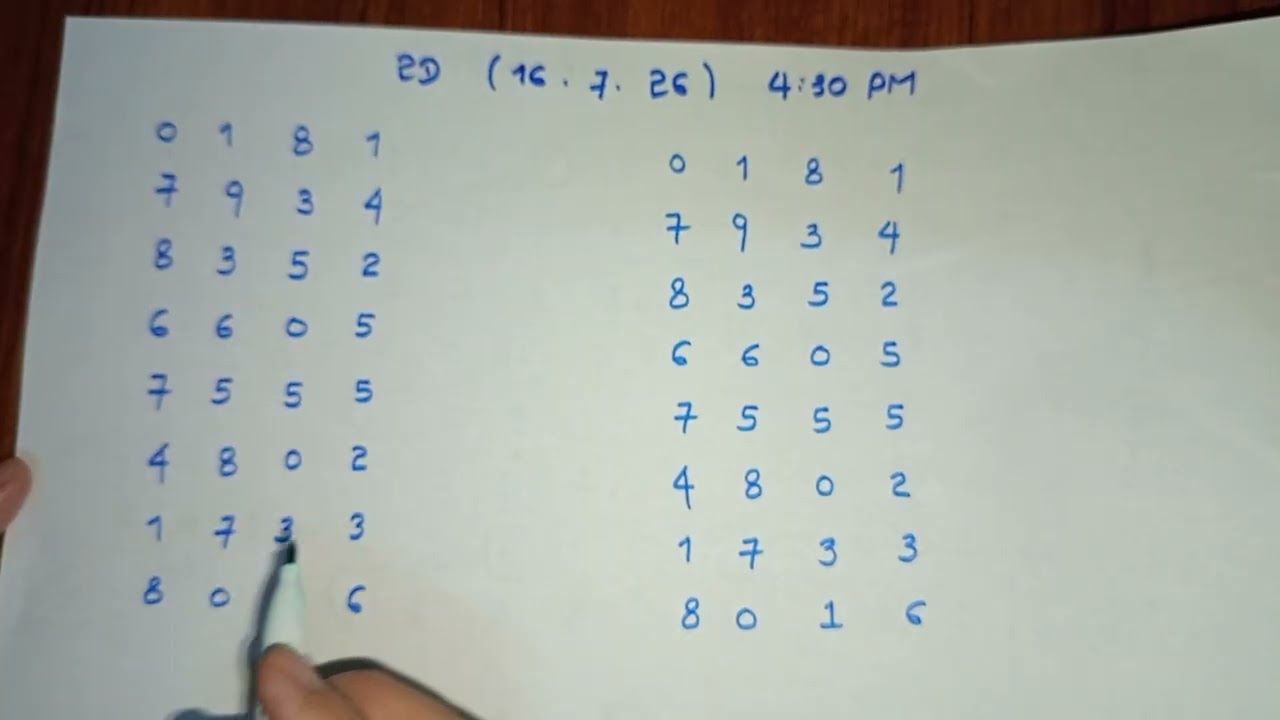 2D (16.7.26) 4:30 PM
0 1 8 1
7 9 3 4
8 3 5 2
6 6 0 5
7 5 5 5
4 8 0 2
1 7 3 3
8 0 6
0 1 8 1
7 9 3 4
8 3 5 2
6 6 0 5
7 5 5 5
4 8 0 2
1 7 3 3
8 0 1 6